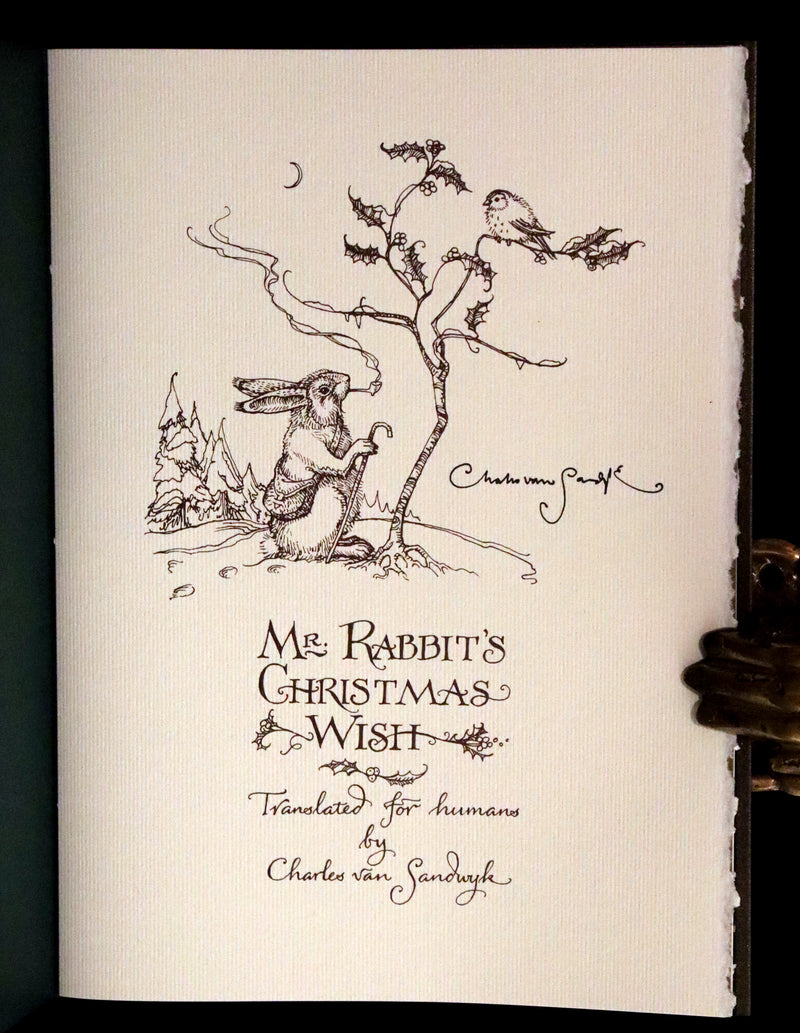 Charles van Sandwyk
MR. RABBIT'S
CHRISTMAS
WISH
Translated for humans
by
Charles van Sandwyk